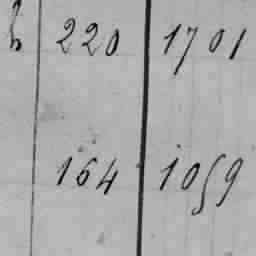 220 1701
164 1059